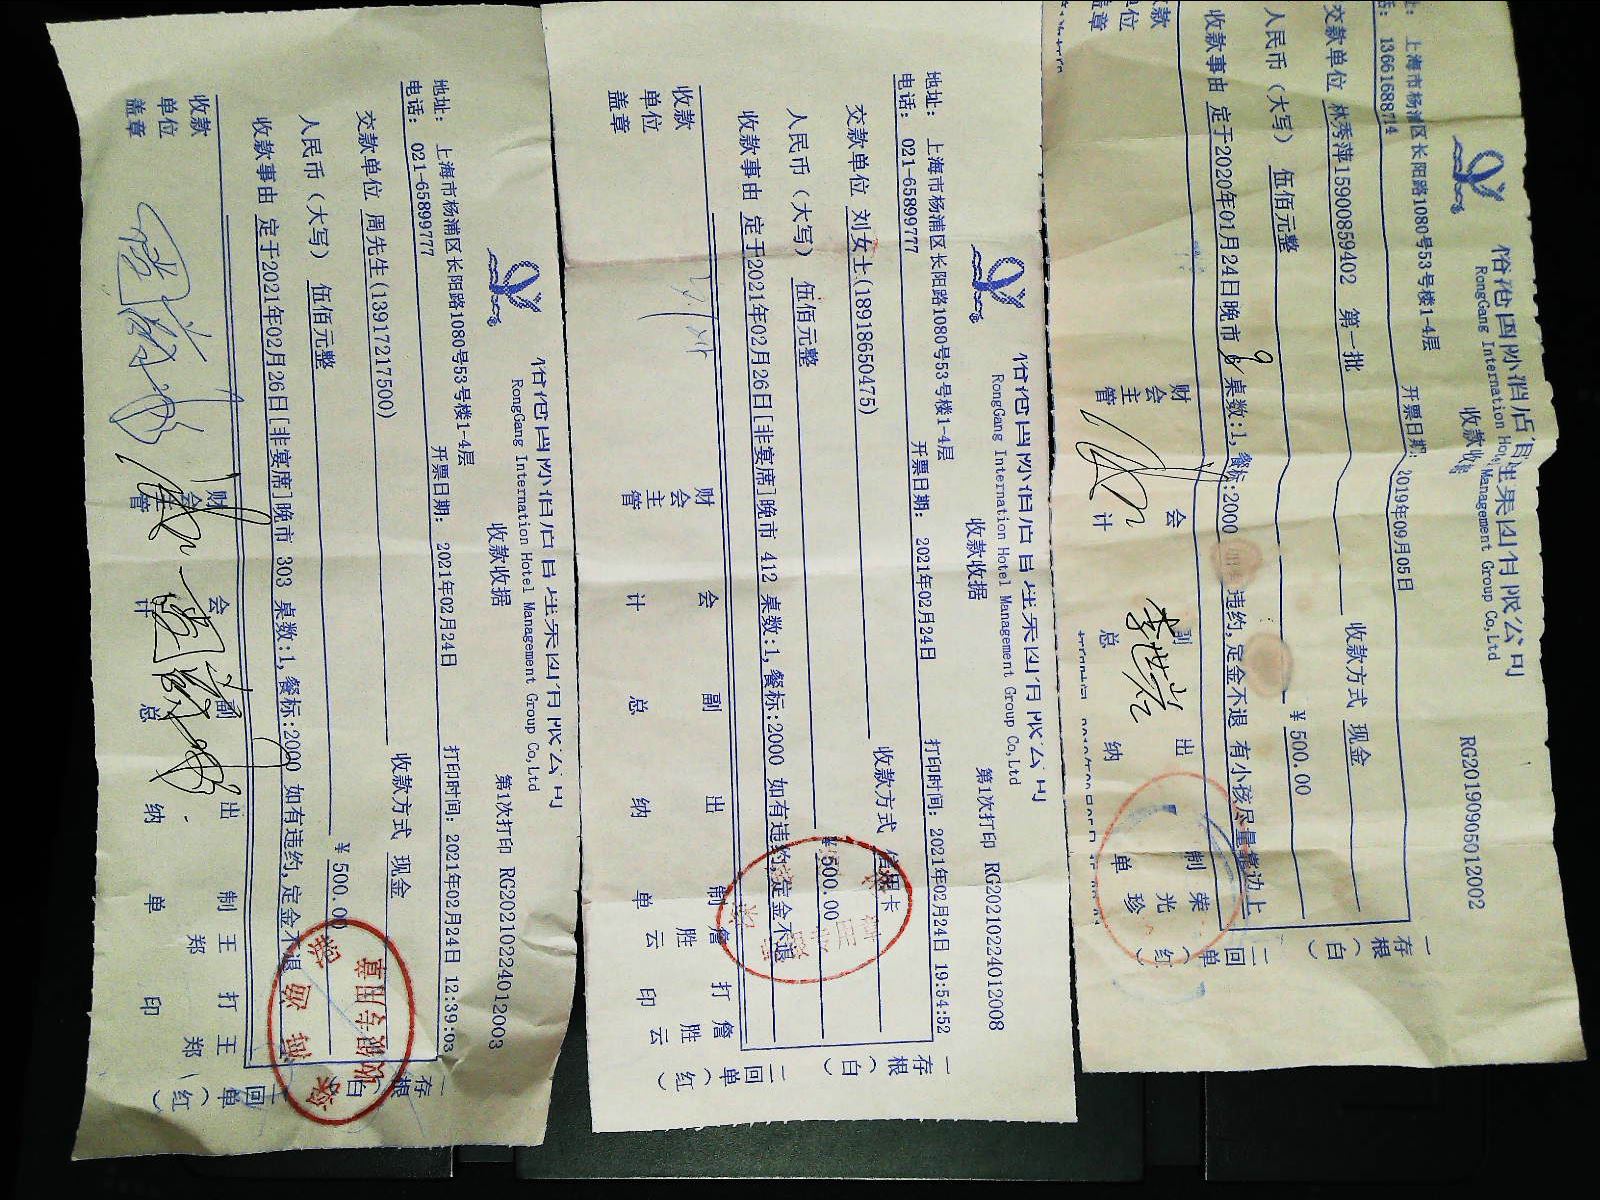 RongGang International Hotel Management Group Co,Ltd
收款收据
第1次打印 RG20210224012003
地址: 上海市杨浦区长阳路1080号53号楼1-4层
电话: 021-65899777
开票日期: 2021年02月24日
打印时间: 2021年02月24日 12:39:03
交款单位 周先生(13917217500)
收款方式 现金
人民币(大写) 伍佰元整
¥ 500.00
收款事由 定于2021年02月26日[非宴席]晚市 303 桌数:1,餐标:2000 如有违约,定金不退
收款单位盖章
财会主管
会计
副总
出纳
制单 王郑
打印 王郑
一存根(白) 二回单(红)
RongGang International Hotel Management Group Co,Ltd
收款收据
第1次打印 RG20210224012008
地址: 上海市杨浦区长阳路1080号53号楼1-4层
电话: 021-65899777
开票日期: 2021年02月24日
打印时间: 2021年02月24日 19:54:52
交款单位 刘女士(18918650475)
收款方式 信用卡
人民币(大写) 伍佰元整
¥ 500.00
收款事由 定于2021年02月26日[非宴席]晚市 412 桌数:1,餐标:2000 如有违约,定金不退
收款单位盖章
财会主管
会计
副总
出纳
制单 詹胜云
打印 詹胜云
一存根(白) 二回单(红)
RongGang International Hotel Management Group Co,Ltd
收款收据
RG20190905012002
上海市杨浦区长阳路1080号53号楼1-4层
13661688714
开票日期: 2019年09月05日
交款单位 林秀萍15900859402 第一批
收款方式 现金
人民币(大写) 伍佰元整
¥ 500.00
收款事由 定于2020年01月24日晚市 9 桌数:1,餐标:2000 违约,定金不退 有小孩尽量靠边上
收款单位盖章
财会主管
会计
副总
出纳
制单 荣光珍
一存根(白) 二回单(红)